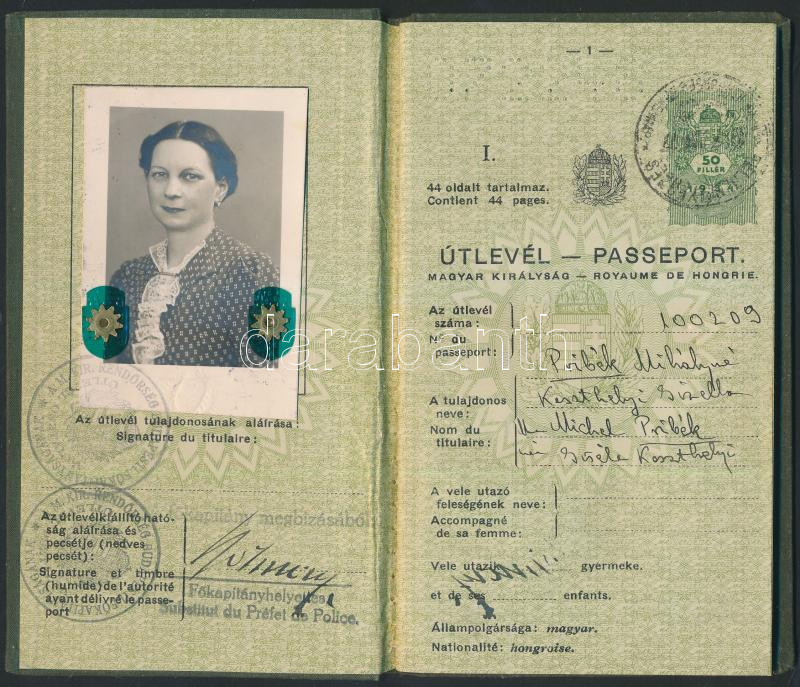 Az útlevél tulajdonosának aláírása:
Signature du titulaire:
Az útlevélkiállító ható-
ság aláírása és
pecsétje (nedves
pecsét):
Signature et timbre
(humide) de l'autorité
ayant délivré le passe-
port
kapitány megbizásából:
Főkapitányhelyettes
Substitut du Préfet de Police.
M. KIR. RENDŐRSÉG
M. KIR. RENDŐRSÉG BUD
darabanth
— 1 —
50
FILLÉR
I.
44 oldalt tartalmaz.
Contient 44 pages.
ÚTLEVÉL — PASSEPORT.
MAGYAR KIRÁLYSÁG — ROYAUME DE HONGRIE.
Az útlevél
száma:
N° du
passeport:
100209
A tulajdonos
neve:
Nom du
titulaire:
Pribék Mihályné
Keszthelyi Gizella
Michel Pribék
née Gisèle Keszthelyi
A vele utazó
feleségének neve:
Accompagné
de sa femme:
Vele utazik gyermeke.
et de ses enfants.
Állampolgársága: magyar.
Nationalité: hongroise.